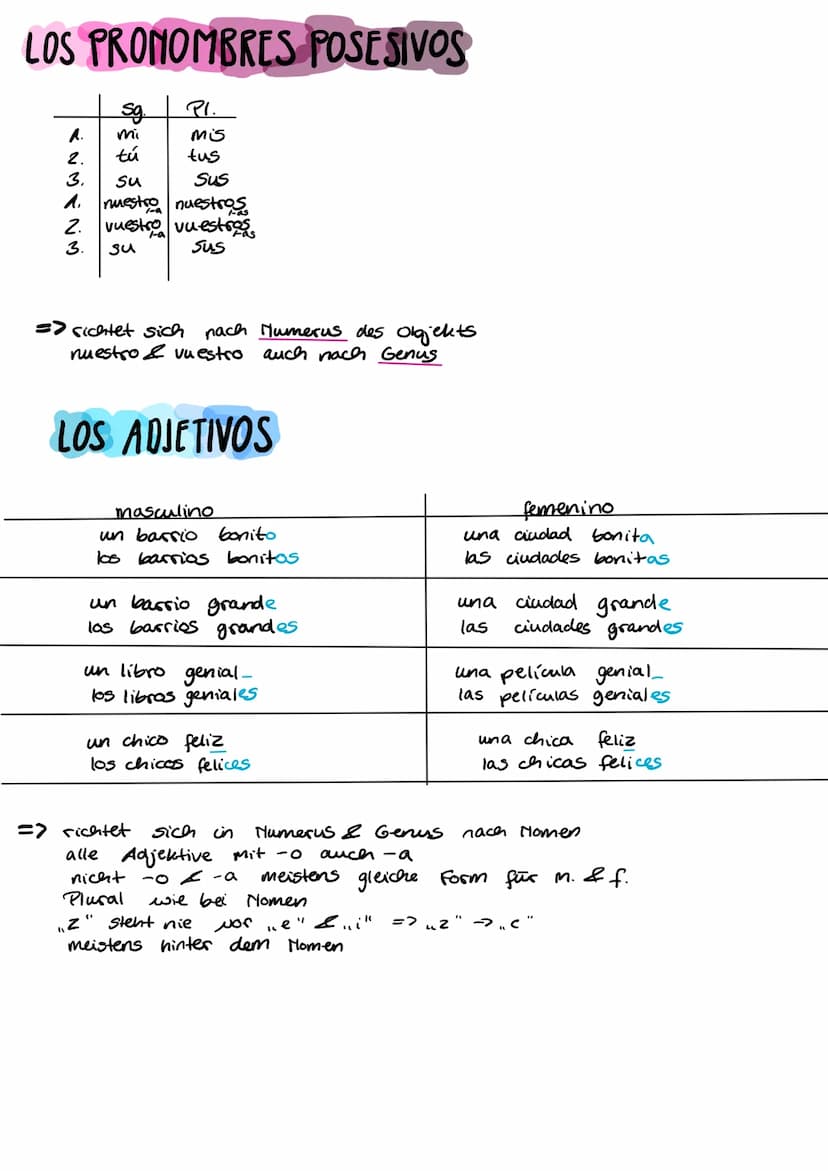 LOS PRONOMBRES POSESIVOS
Sg. Pl.
1. mi mis
2. tú tus
3. su sus
1. nuestro/-a nuestros/-as
2. vuestro/-a vuestros/-as
3. su sus
=> richtet sich nach Numerus des Objekts
nuestro & vuestro auch nach Genus
LOS ADJETIVOS
masculino femenino
un barrio bonito una ciudad bonita
los barrios bonitos las ciudades bonitas
un barrio grande una ciudad grande
los barrios grandes las ciudades grandes
un libro genial_ una película genial_
los libros geniales las películas geniales
un chico feliz una chica feliz
los chicos felices las chicas felices
=> richtet sich in Numerus & Genus nach Nomen
alle Adjektive mit -o auch -a
nicht -o & -a meistens gleiche Form für m. & f.
Plural wie bei Nomen
„z" steht nie vor „e" & „i" => „z" -> „c"
meistens hinter dem Nomen